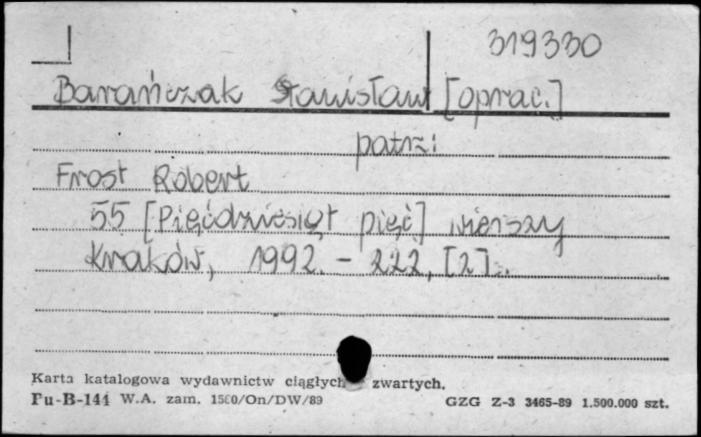 319330
Barańczak Stanisław [oprac.]
patrz:
Frost Robert
55 [Pięćdziesiąt pięć] wierszy
Kraków, 1992. - 222, [2] s.
Karta katalogowa wydawnictw ciągłych zwartych.
Pu-B-144 W.A. zam. 1560/On/DW/89 GZG Z-3 3465-89 1.500.000 szt.